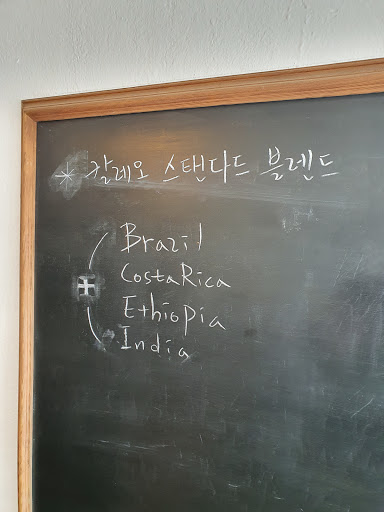 * 칼레오 스탠다드 블렌드
Brazil
CostaRica
+
Ethiopia
India